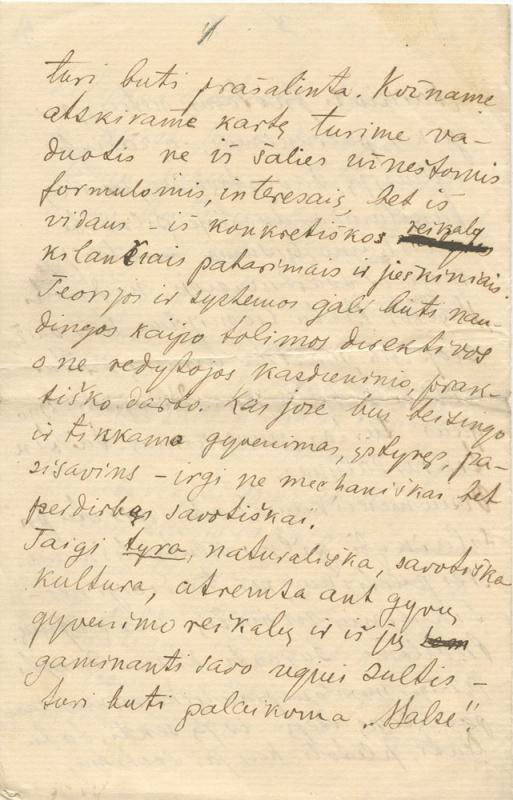 turi buti prašalinta. Kožname
atskirame kartę turime va-
duotis ne iš šalies užneštomis
formulomis, interesais, bet iš
vidaus - iš konkretiškos reikalų
kilančiais patarimais ir jieškiniais.
Teorijos ir systemos gali buti nau-
dingos kaipo tolimos direktivos
o ne redytojos kasdieninio, prak-
tiško darbo. Kas jose bus teisingo
ir tikkamo gyvenimas, ištyręs, pa-
sisavins - irgi ne mechaniškai bet
perdirbęs savotiškai.
Taigi tyra, naturališka, savotiška
kultura, atremta ant gyvų
gyvenimo reikalų ir iš jų
gaminanti savo ugnies sultis -
turi buti palaikoma